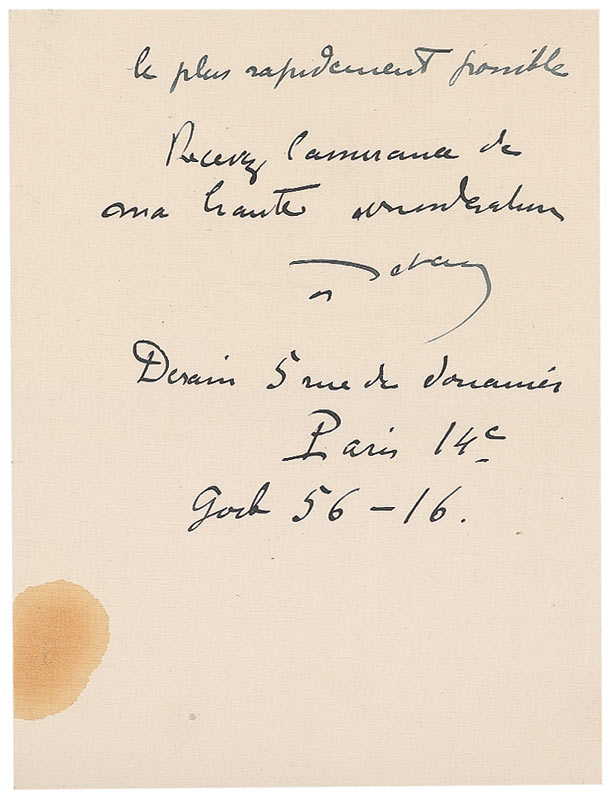 le plus rapidement possible
Recevez l'assurance de
ma haute consideration
Derain
Derain 5 rue du douanier
Paris 14e
Gob 56-16.